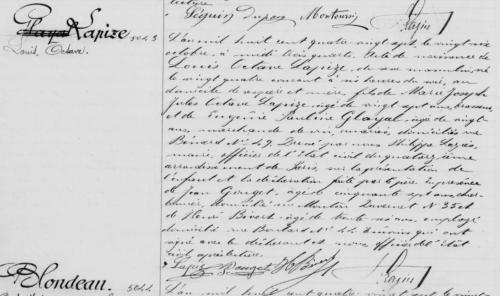 Séguin Dupos Montourin Rapin
Lapize 5043
Louis, Octave.
L'an mil huit cent quatre vingt sept, le vingt six
octobre, à midi trois quarts. Acte de naissance de
Louis Octave Lapize, du sexe masculin, né
le vingt quatre courant à six heures du soir, au
domicile de ses père et mère, fils de Marie Joseph
Jules Octave Lapize âgé de vingt sept ans, brasseur
et de Eugénie Pauline Glayal, âgée de vingt
ans, marchande de vin, mariés, domiciliés rue
Bénard No 49. Dressé par nous Philippe
maire, officier de l'état civil du quatorzième
arrondissement de Paris, sur la présentation de
l'enfant et la déclaration faite par le père. En présence
de Jean Gouget, âgé de cinquante sept ans, charbonnier,
domicilié rue Moulin No 35 et
de Henri Bivert, âgé de trente ans, employé
domicilié rue Bénard No 44. Témoins qui ont
signé avec le déclarant et nous officier de l'état
civil après lecture.
Lapize Gouget H Rapin
Blondeau. 5044
L'an mil huit cent quatre vingt